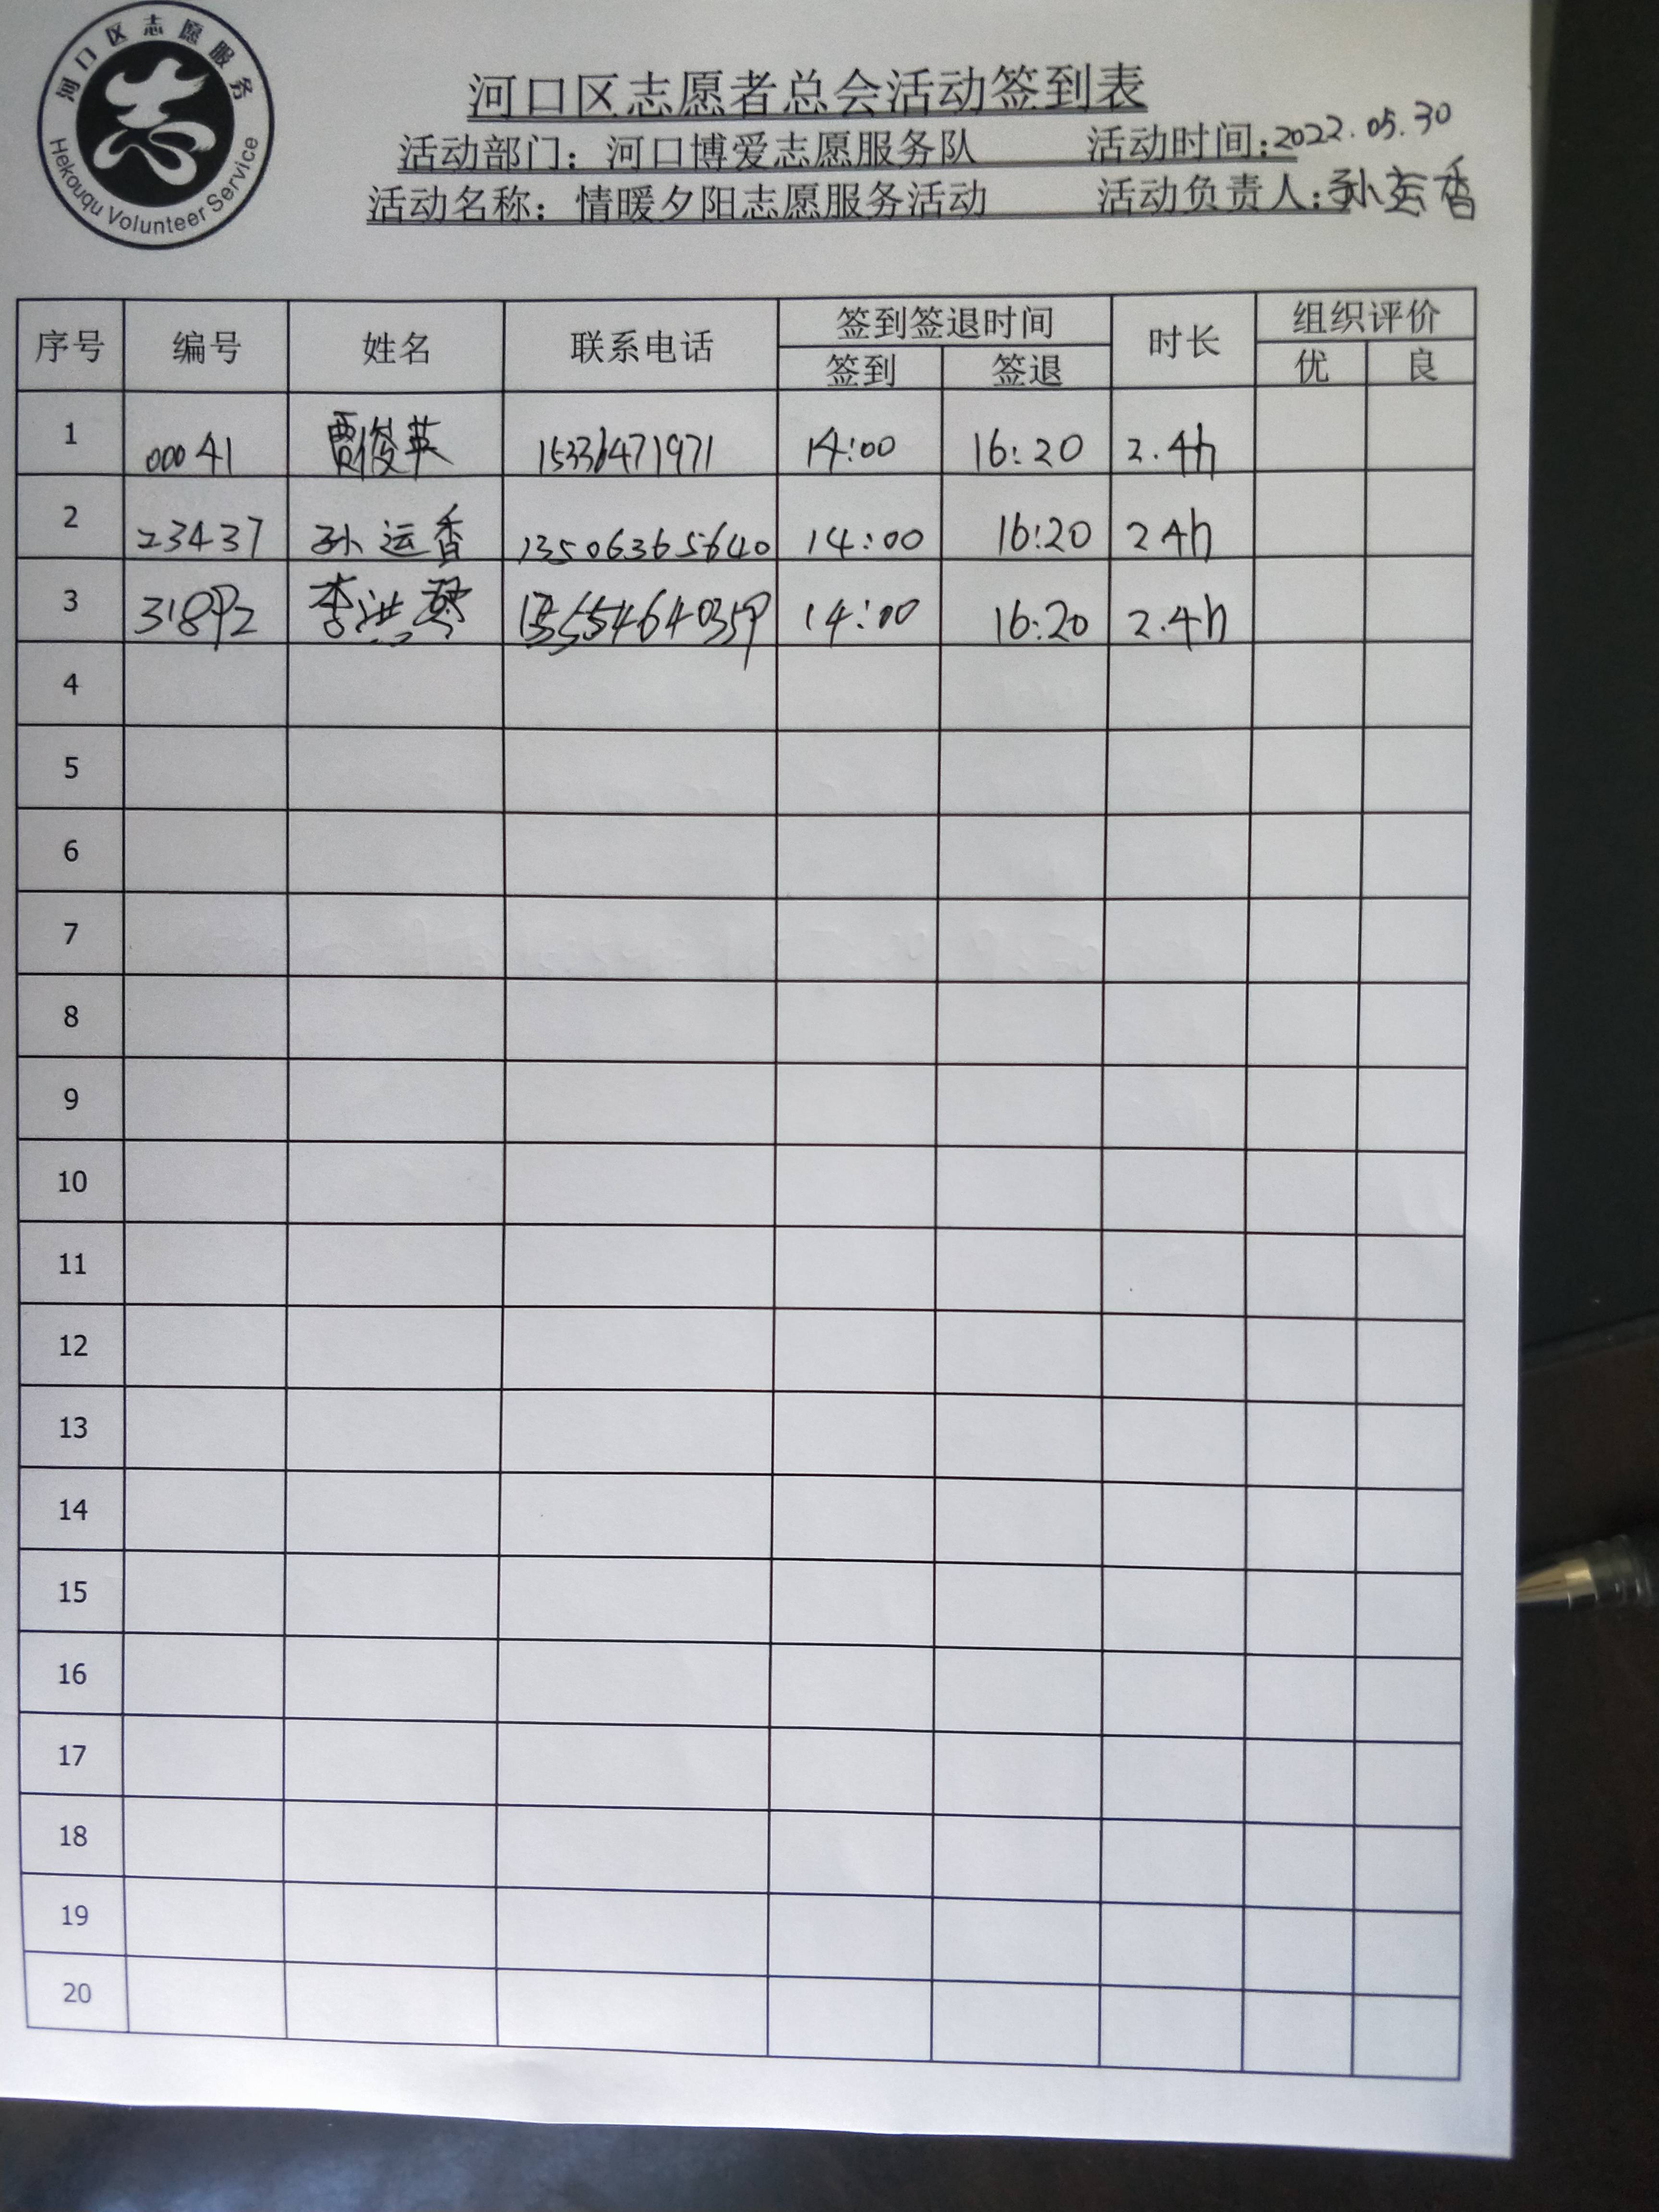 河口区志愿服务
Hekouqu Volunteer Service
河口区志愿者总会活动签到表
活动部门：河口博爱志愿服务队 活动时间：2022.05.30
活动名称：情暖夕阳志愿服务活动 活动负责人：孙运香
序号 编号 姓名 联系电话 签到签退时间 时长 组织评价
签到 签退 优 良
1 00041 贾俊英 15336471971 14:00 16:20 2.4h
2 23437 孙运香 13506365640 14:00 16:20 2.4h
3 31892 李洪琴 14:00 16:20 2.4h
4
5
6
7
8
9
10
11
12
13
14
15
16
17
18
19
20